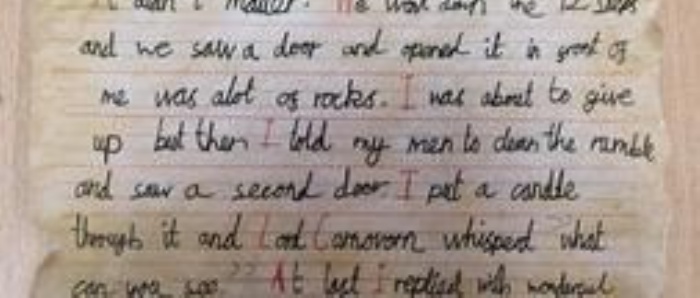 didn't matter. We went down the 12 steps
and we saw a door and opened it in front of
me was alot of rocks. I was about to give
up but then I told my men to clean the rumble
and saw a second door. I put a candle
through it and Lord Carnovorn whispered "what
can you see?" At last I replied with wonderful